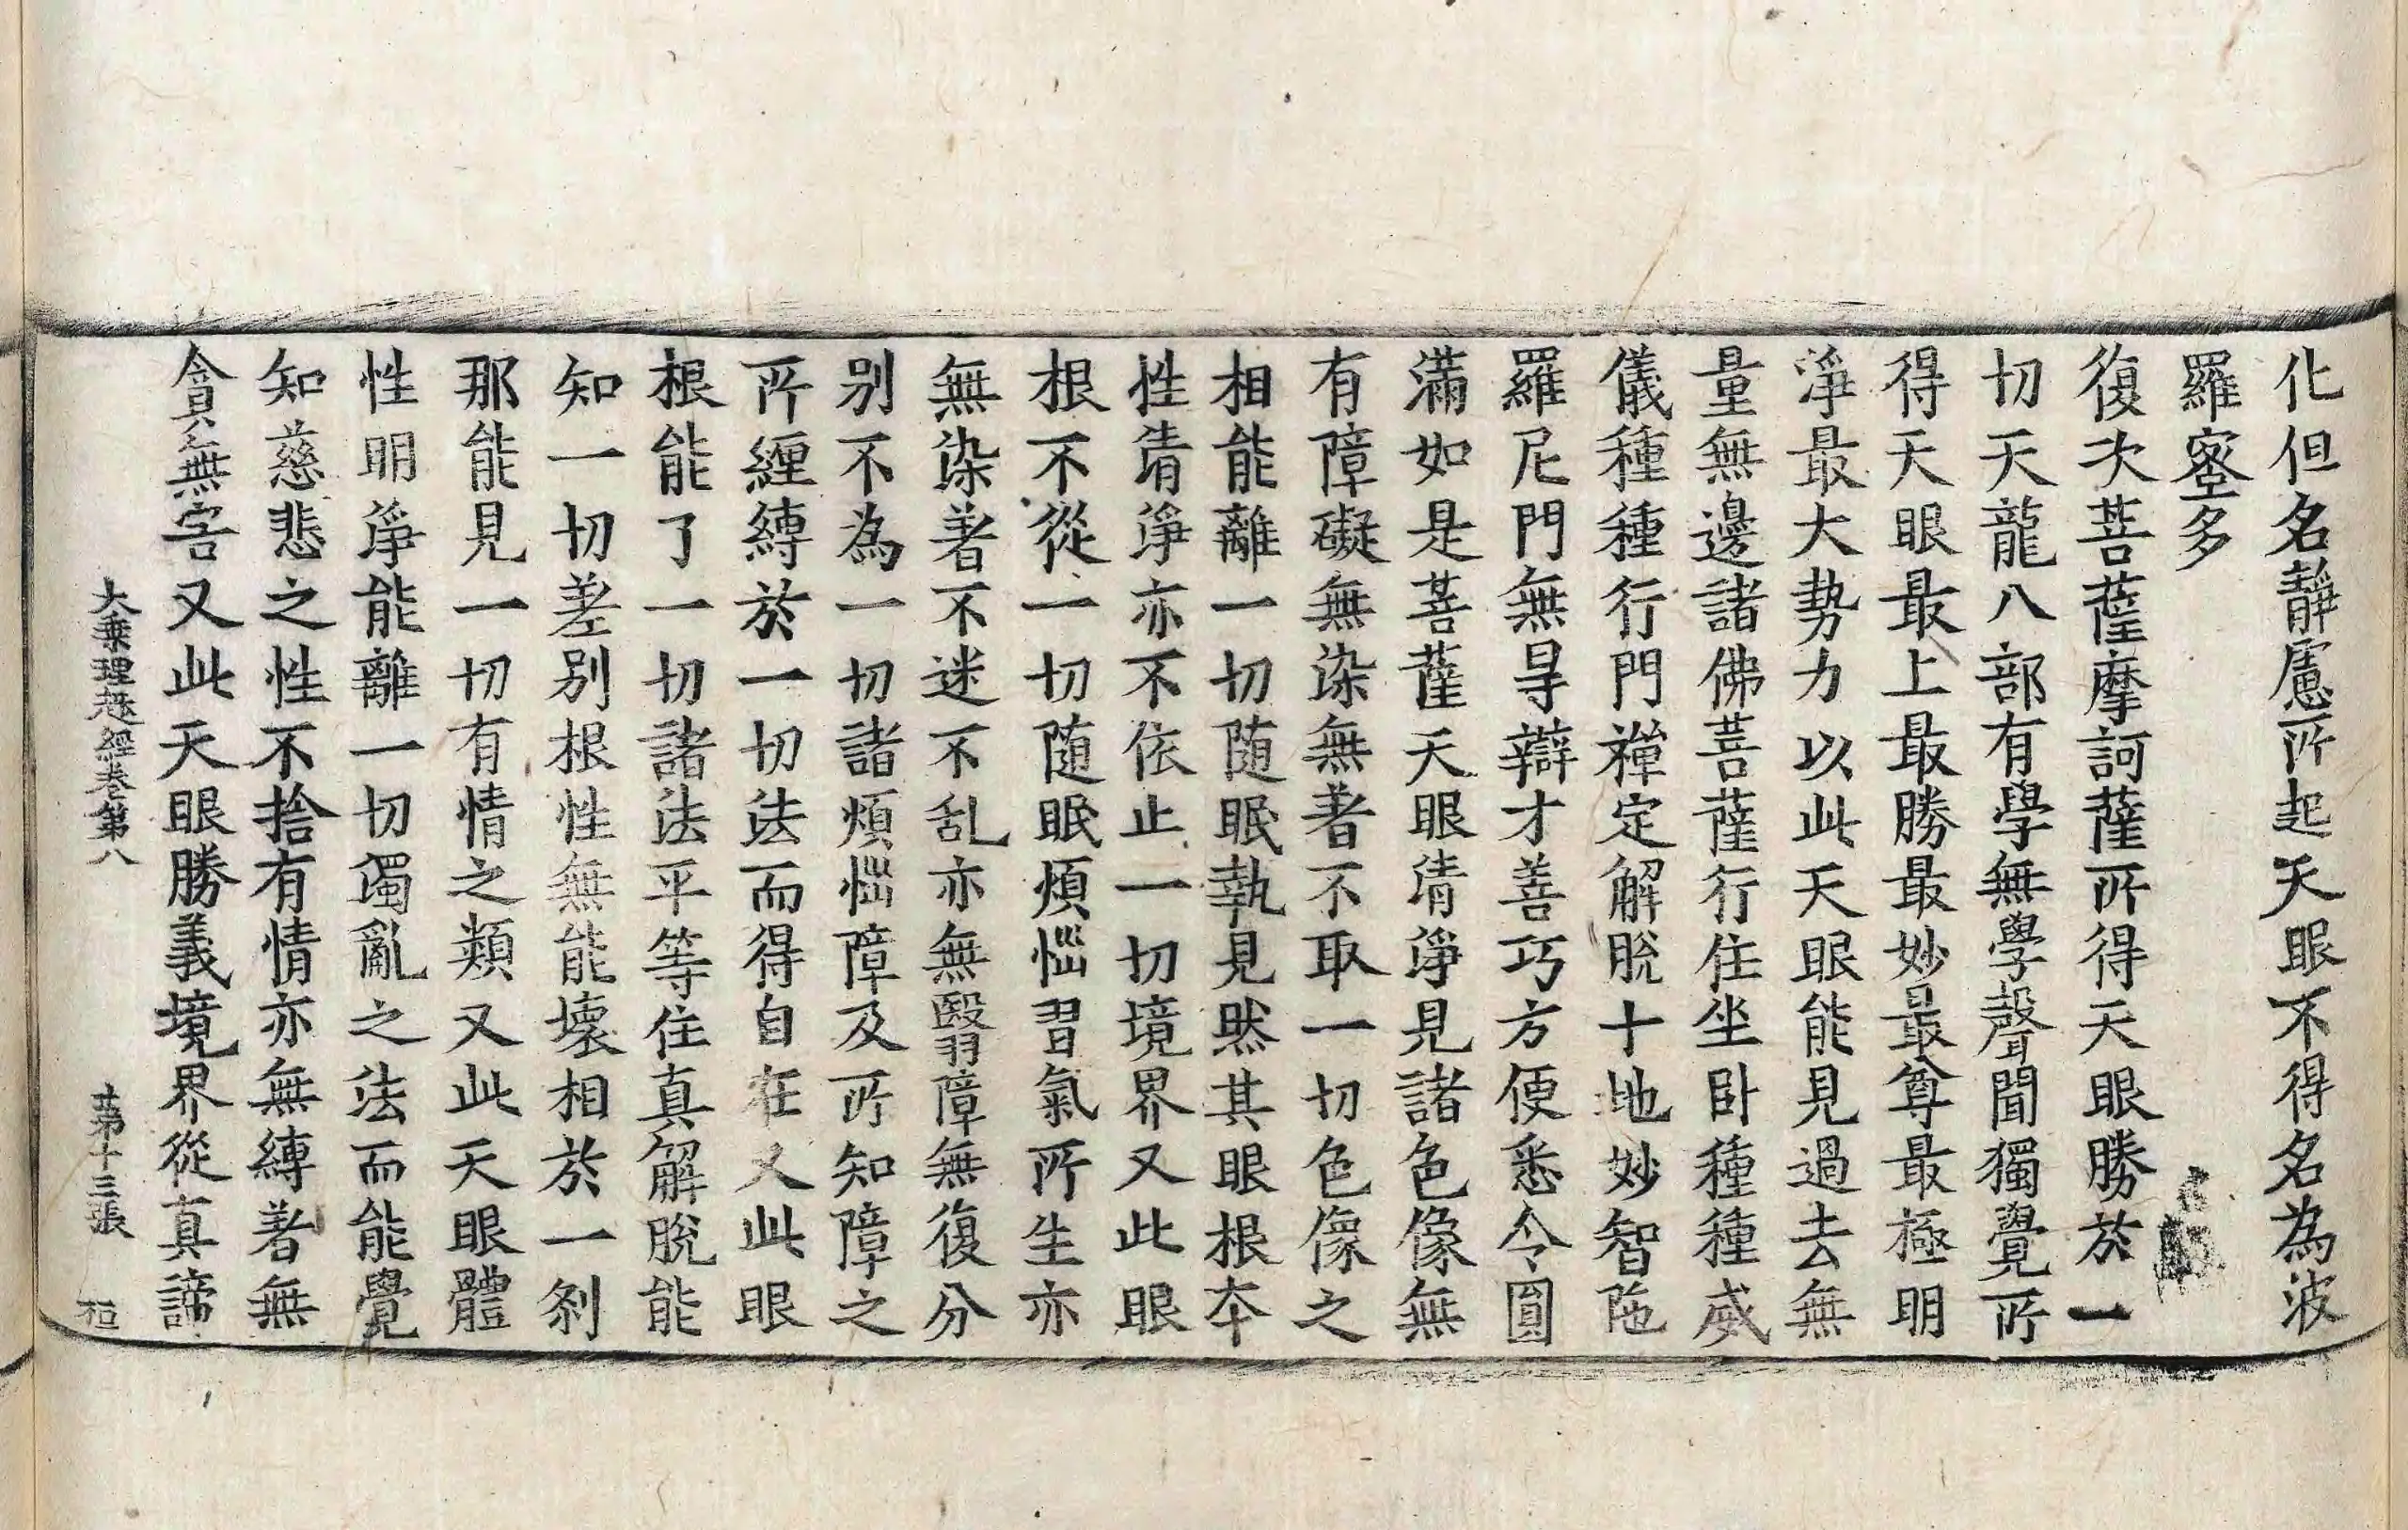 化但名靜慮所起天眼不得名為波
羅蜜多
復次菩薩摩訶薩所得天眼勝於一
切天龍八部有學無學聲聞獨覺所
得天眼最上最勝最妙最尊最極明
淨最大勢力以此天眼能見過去無
量無邊諸佛菩薩行住坐臥種種威
儀種種行門禪定解脫十地妙智陁
羅尼門無㝵辯才善巧方便悉令圓
滿如是菩薩天眼清淨見諸色像無
有障礙無染無著不取一切色像之
相能離一切随眠執見然其眼根夲
性清淨亦不依止一切境界又此眼
根不從一切随眠煩惱習氣所生亦
無染著不迷不乱亦無翳障無復分
别不為一切諸煩惱障及所知障之
所纏縛於一切法而得自在又此眼
根能了一切諸法平等住真解脫能
知一切差别根性無能壞相於一剎
那能見一切有情之類又此天眼體
性明淨能離一切濁亂之法而能覺
知慈悲之性不捨有情亦無縛著無
貪無害又此天眼勝義境界從真諦
大乗理趣經卷第八 第十三張 桓